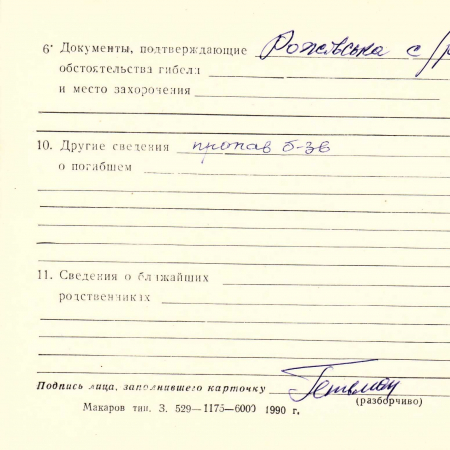 6. Документы, подтверждающие Рожівська с/р
обстоятельства гибели
и место захоронения
10. Другие сведения пропав б-зв
о погибшем
11. Сведения о ближайших
родственниках
Подпись лица, заполнившего карточку Гетьман
(разборчиво)
Макаров тип. З. 529—1175—6000 1990 г.